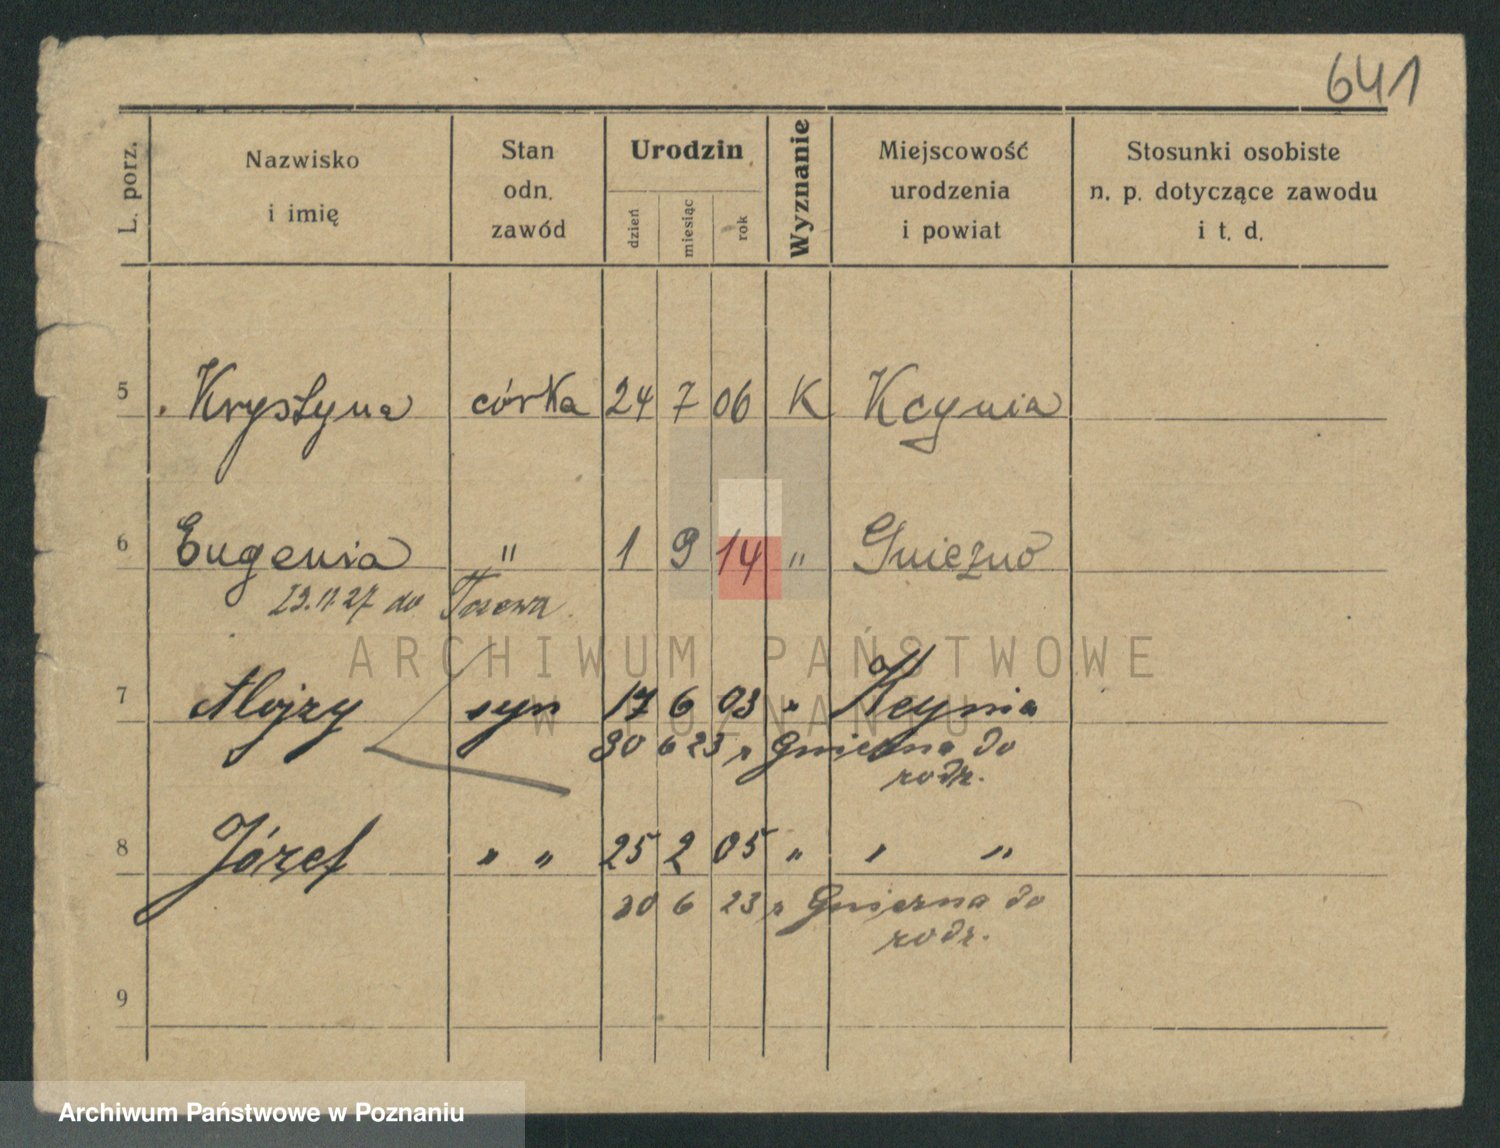 641
L. porz.
Nazwisko
i imię
Stan
odn.
zawód
Urodzin
dzień
miesiąc
rok
Wyznanie
Miejscowość
urodzenia
i powiat
Stosunki osobiste
n. p. dotyczące zawodu
i t. d.
5 Krystyna córka 24 7 06 K Kcynia
6 Eugenia " 1 9 14 " Gniezno
29.11.27 do
ARCHIWUM PAŃSTWOWE
W POZNANIU
7 Alojzy syn 17 6 03 " Kcynia
30 6 23 z Gniezna do
rodz.
8 Józef " " 25 2 05 " " "
30 6 23 z Gniezna do
rodz.
9
Archiwum Państwowe w Poznaniu